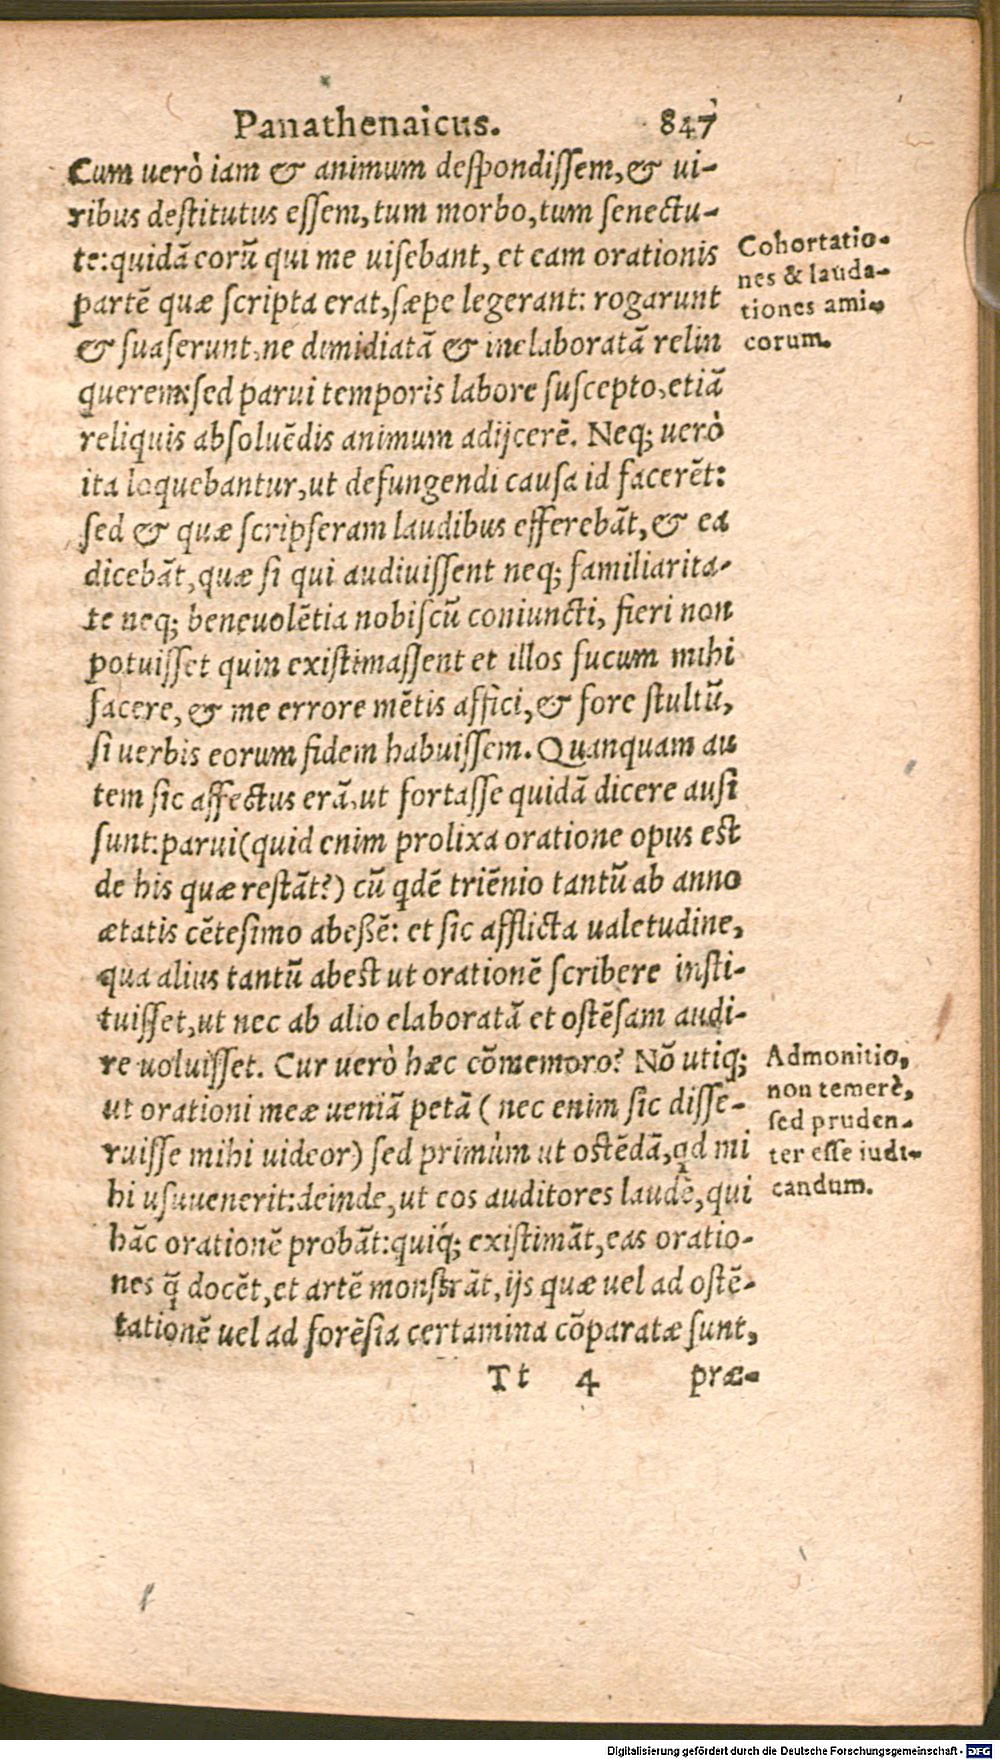 Panathenaicus. 847
Cum uerò iam & animum despondissem, & ui-
ribus destitutus essem, tum morbo, tum senectu-
te: quidã eorũ qui me uisebant, et eam orationis
partẽ quæ scripta erat, sæpe legerant: rogarunt
& suaserunt, ne dimidiatã & inelaboratã relin
querem: sed parui temporis labore suscepto, etiã
reliquis absoluẽdis animum adijcerẽ. Neq; uerò
ita loquebantur, ut defungendi causa id facerẽt:
sed & quæ scripseram laudibus efferebãt, & ea
dicebãt, quæ si qui audiuissent neq; familiarita-
te neq; beneuolẽtia nobiscũ coniuncti, fieri non
potuisset quin existimassent et illos fucum mihi
facere, & me errore mẽtis affici, & fore stultũ,
si uerbis eorum fidem habuissem. Quanquam au
tem sic affectus erã, ut fortasse quidã dicere ausi
sunt: parui (quid enim prolixa oratione opus est
de his quæ restãt?) cũ qdẽ triẽnio tantũ ab anno
ætatis cẽtesimo abeßẽ: et sic afflicta ualetudine,
qua alius tantũ abest ut orationẽ scribere insti-
tuisset, ut nec ab alio elaboratã et ostẽsam audi-
re uoluisset. Cur uerò hæc cõmemoro? Nõ utiq;
ut orationi meæ ueniã petã (nec enim sic disse-
ruisse mihi uideor) sed primùm ut ostẽdã, qd mi
hi usuuenerit: deinde, ut eos auditores laudẽ, qui
hãc orationẽ probãt: quiq́; existimãt, eas oratio-
nes q̃ docẽt, et artẽ monstrãt, ijs quæ uel ad ostẽ-
tationẽ uel ad forẽsia certamina cõparatæ sunt,
Tt 4 præ-
Cohortatio-
nes & lauda-
tiones ami-
corum.
Admonitio,
non temerè,
sed pruden-
ter esse iudi-
candum.
Digitalisierung gefördert durch die Deutsche Forschungsgemeinschaft - DFG